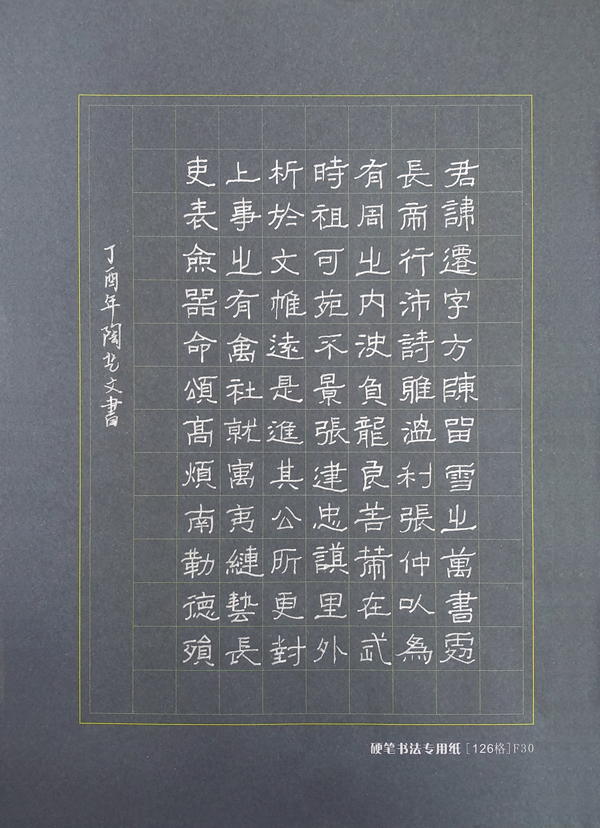 君諱遷字方陳留雪之萬書
長行沛詩溫利張仲以為
有周之内波負龍良苦在武
時祖可苑不景張建忠里外
析於文帷遠是進其公所更對
上事之有禽社就寓夷縺藝長
吏表僉器命頌高煩南勒德殞
丁酉年陶光文書
硬笔书法专用纸 [126格]F30